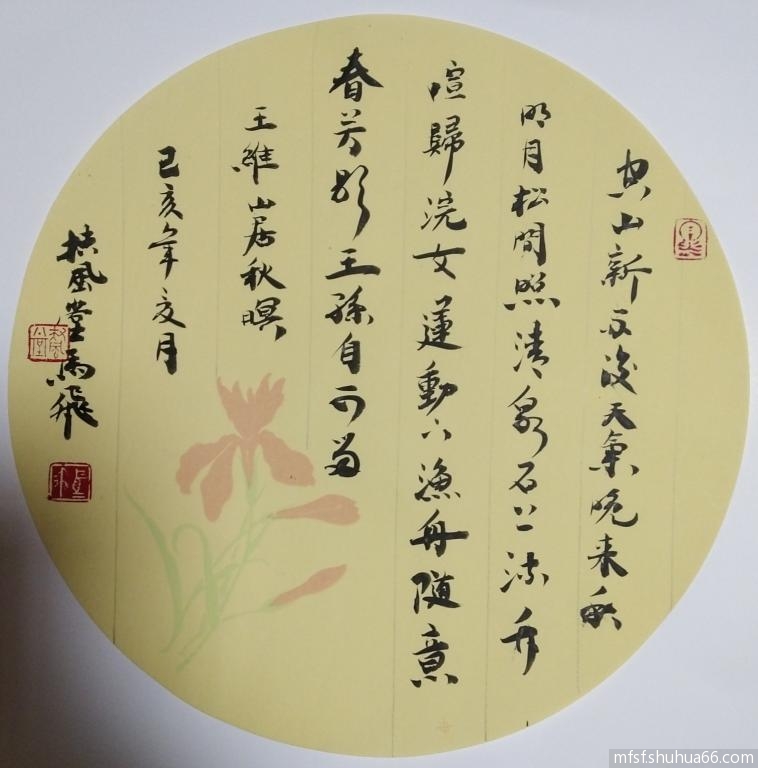 空山新雨後天氣晚來秋
明月松間照清泉石上流竹
喧歸浣女蓮動下漁舟隨意
春芳歇王孫自可留
王維山居秋暝
己亥年亥月
扶風堂馬飛
mfsf.shuhua66.com